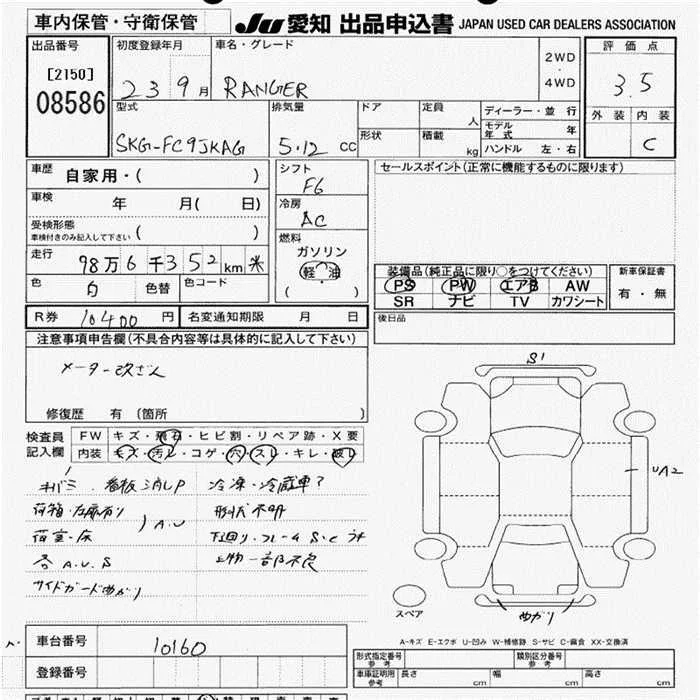 車内保管・守衛保管
JU 愛知 出品申込書 JAPAN USED CAR DEALERS ASSOCIATION
出品番号
[2150]
08586
初度登録年月
23 9月
車名・グレード
RANGER
2WD
・
4WD
評価点
3.5
外装 内装
C
型式
SKG-FC9JKAG
排気量
5.12 CC
ドア
形状
定員 人
積載 kg
ディーラー・並行
モデル年式 年
ハンドル 左・右
車歴 自家用・( )
車検 年 月( 日)
受検形態
車検付きのみ記入して下さい ( )
走行 98万6千352km 米
色 白 色替 色コード
シフト
F6
冷房
AC
燃料
ガソリン
軽油
( )
セールスポイント(正常に機能するものに限ります)
装備品(純正品に限り○をつけてください)
PS PW エアB AW
SR ナビ TV カワシート
新車保証書
有・無
R券 10400円 名変通知期限 月 日
後日品
注意事項申告欄(不具合内容等は具体的に記入して下さい)
メーター改ざん
修復歴 有 (箇所 )
検査員
記入欄
FW キズ・飛石・ヒビ割・リペア跡・X要
内装 キズ・汚レ・コゲ・穴・スレ・キレ・破レ
看板消しP 冷凍・冷蔵車?
荷箱・在庫有り 形状不明
荷室・床 )A.U 下回り・フレームS・C
各A.U.S 上物一部不良
サイドガード曲がり
S1
UA2
曲がり
スペア
A-キズ E-エクボ U-凹み W-補修跡 S-サビ C-腐食 XX-交換済
車台番号 10160
登録番号
形式指定番号
参考
類別区分番号
参考
車庫証明用
参考
長さ cm 幅 cm 高さ cm